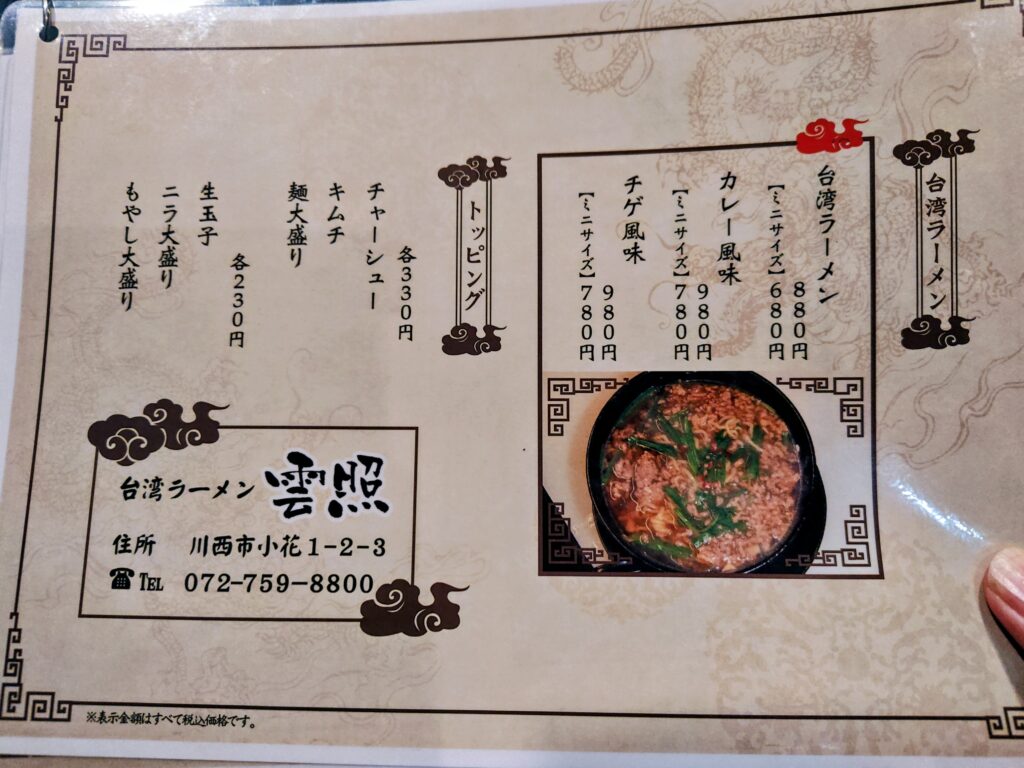 台湾ラーメン
台湾ラーメン
880円
【ミニサイズ】680円
カレー風味
980円
【ミニサイズ】780円
チゲ風味
980円
【ミニサイズ】780円
トッピング
各330円
チャーシュー
キムチ
麺大盛り
各230円
生玉子
ニラ大盛り
もやし大盛り
台湾ラーメン 雲照
住所 川西市小花1-2-3
☎TEL 072-759-8800
※表示金額はすべて税込価格です。